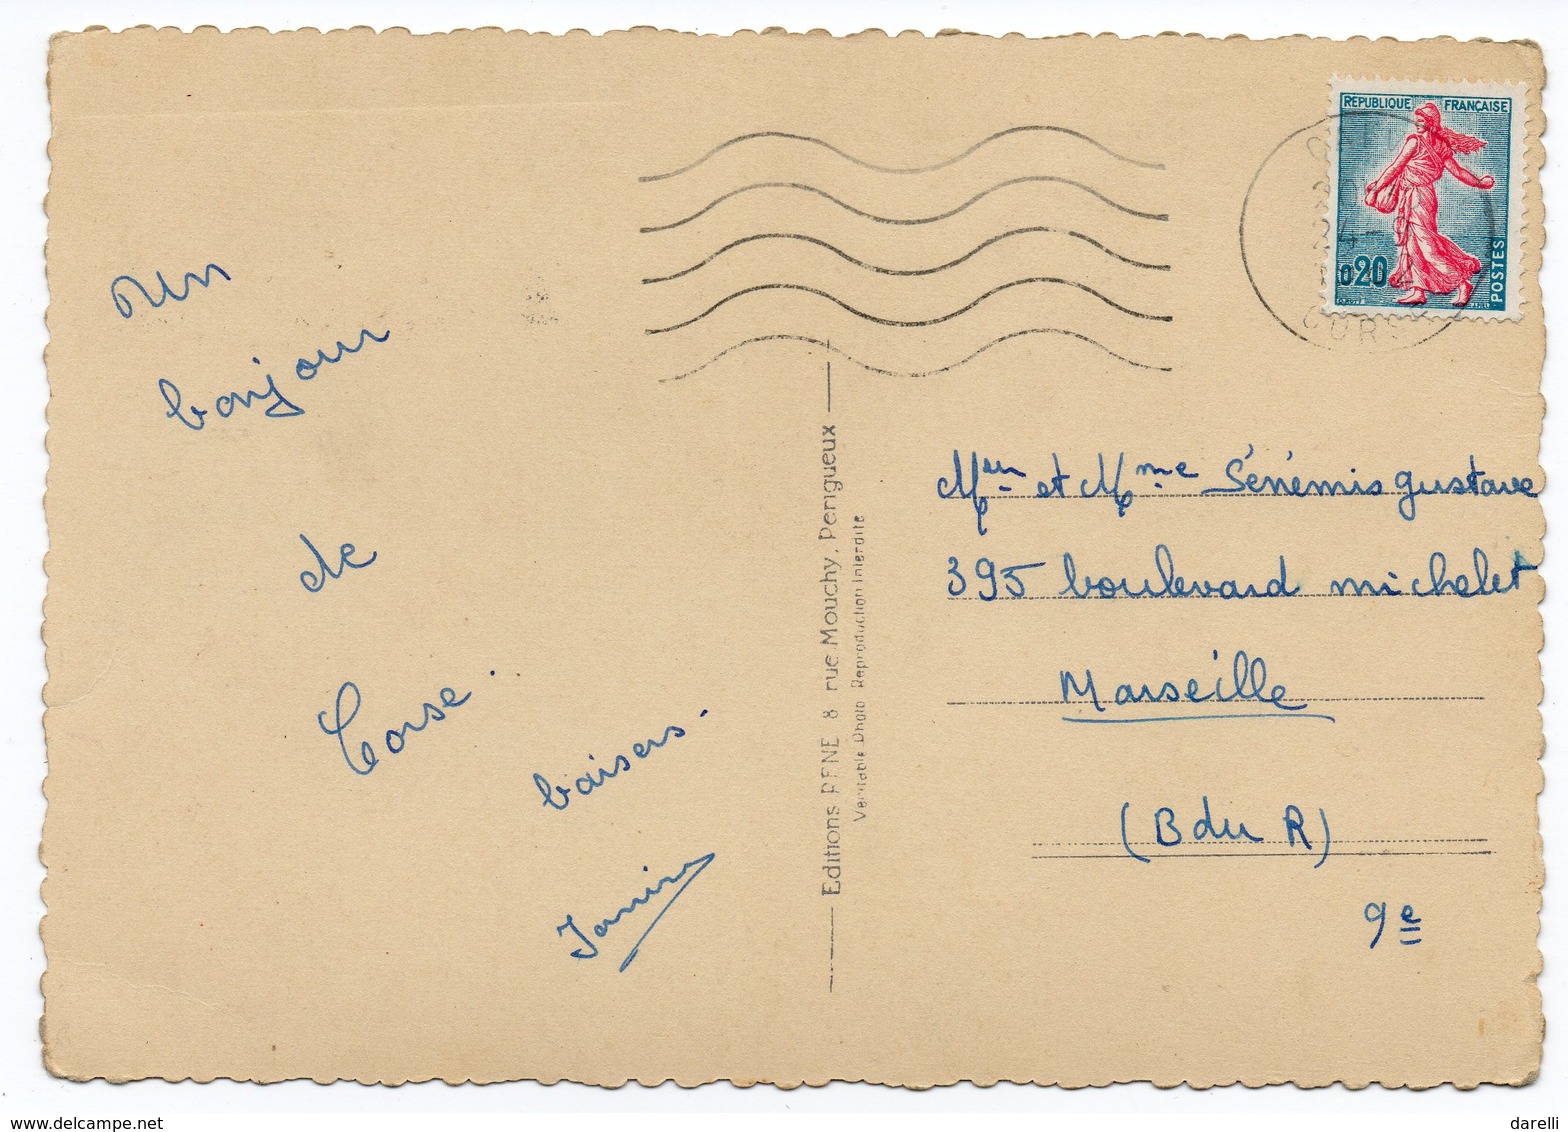 Un
bonjour
de
Corse.
baisers.
REPUBLIQUE FRANÇAISE
0,20
POSTES
CORS
Editions RENE 8 rue Mouchy, Perigueux
Veritable Photo Reproduction Interdite
Mr et Mme Sénémis gustave
395 boulevard michelet
Marseille
(B du R)
9e
https://www.delcampe.net
darelli